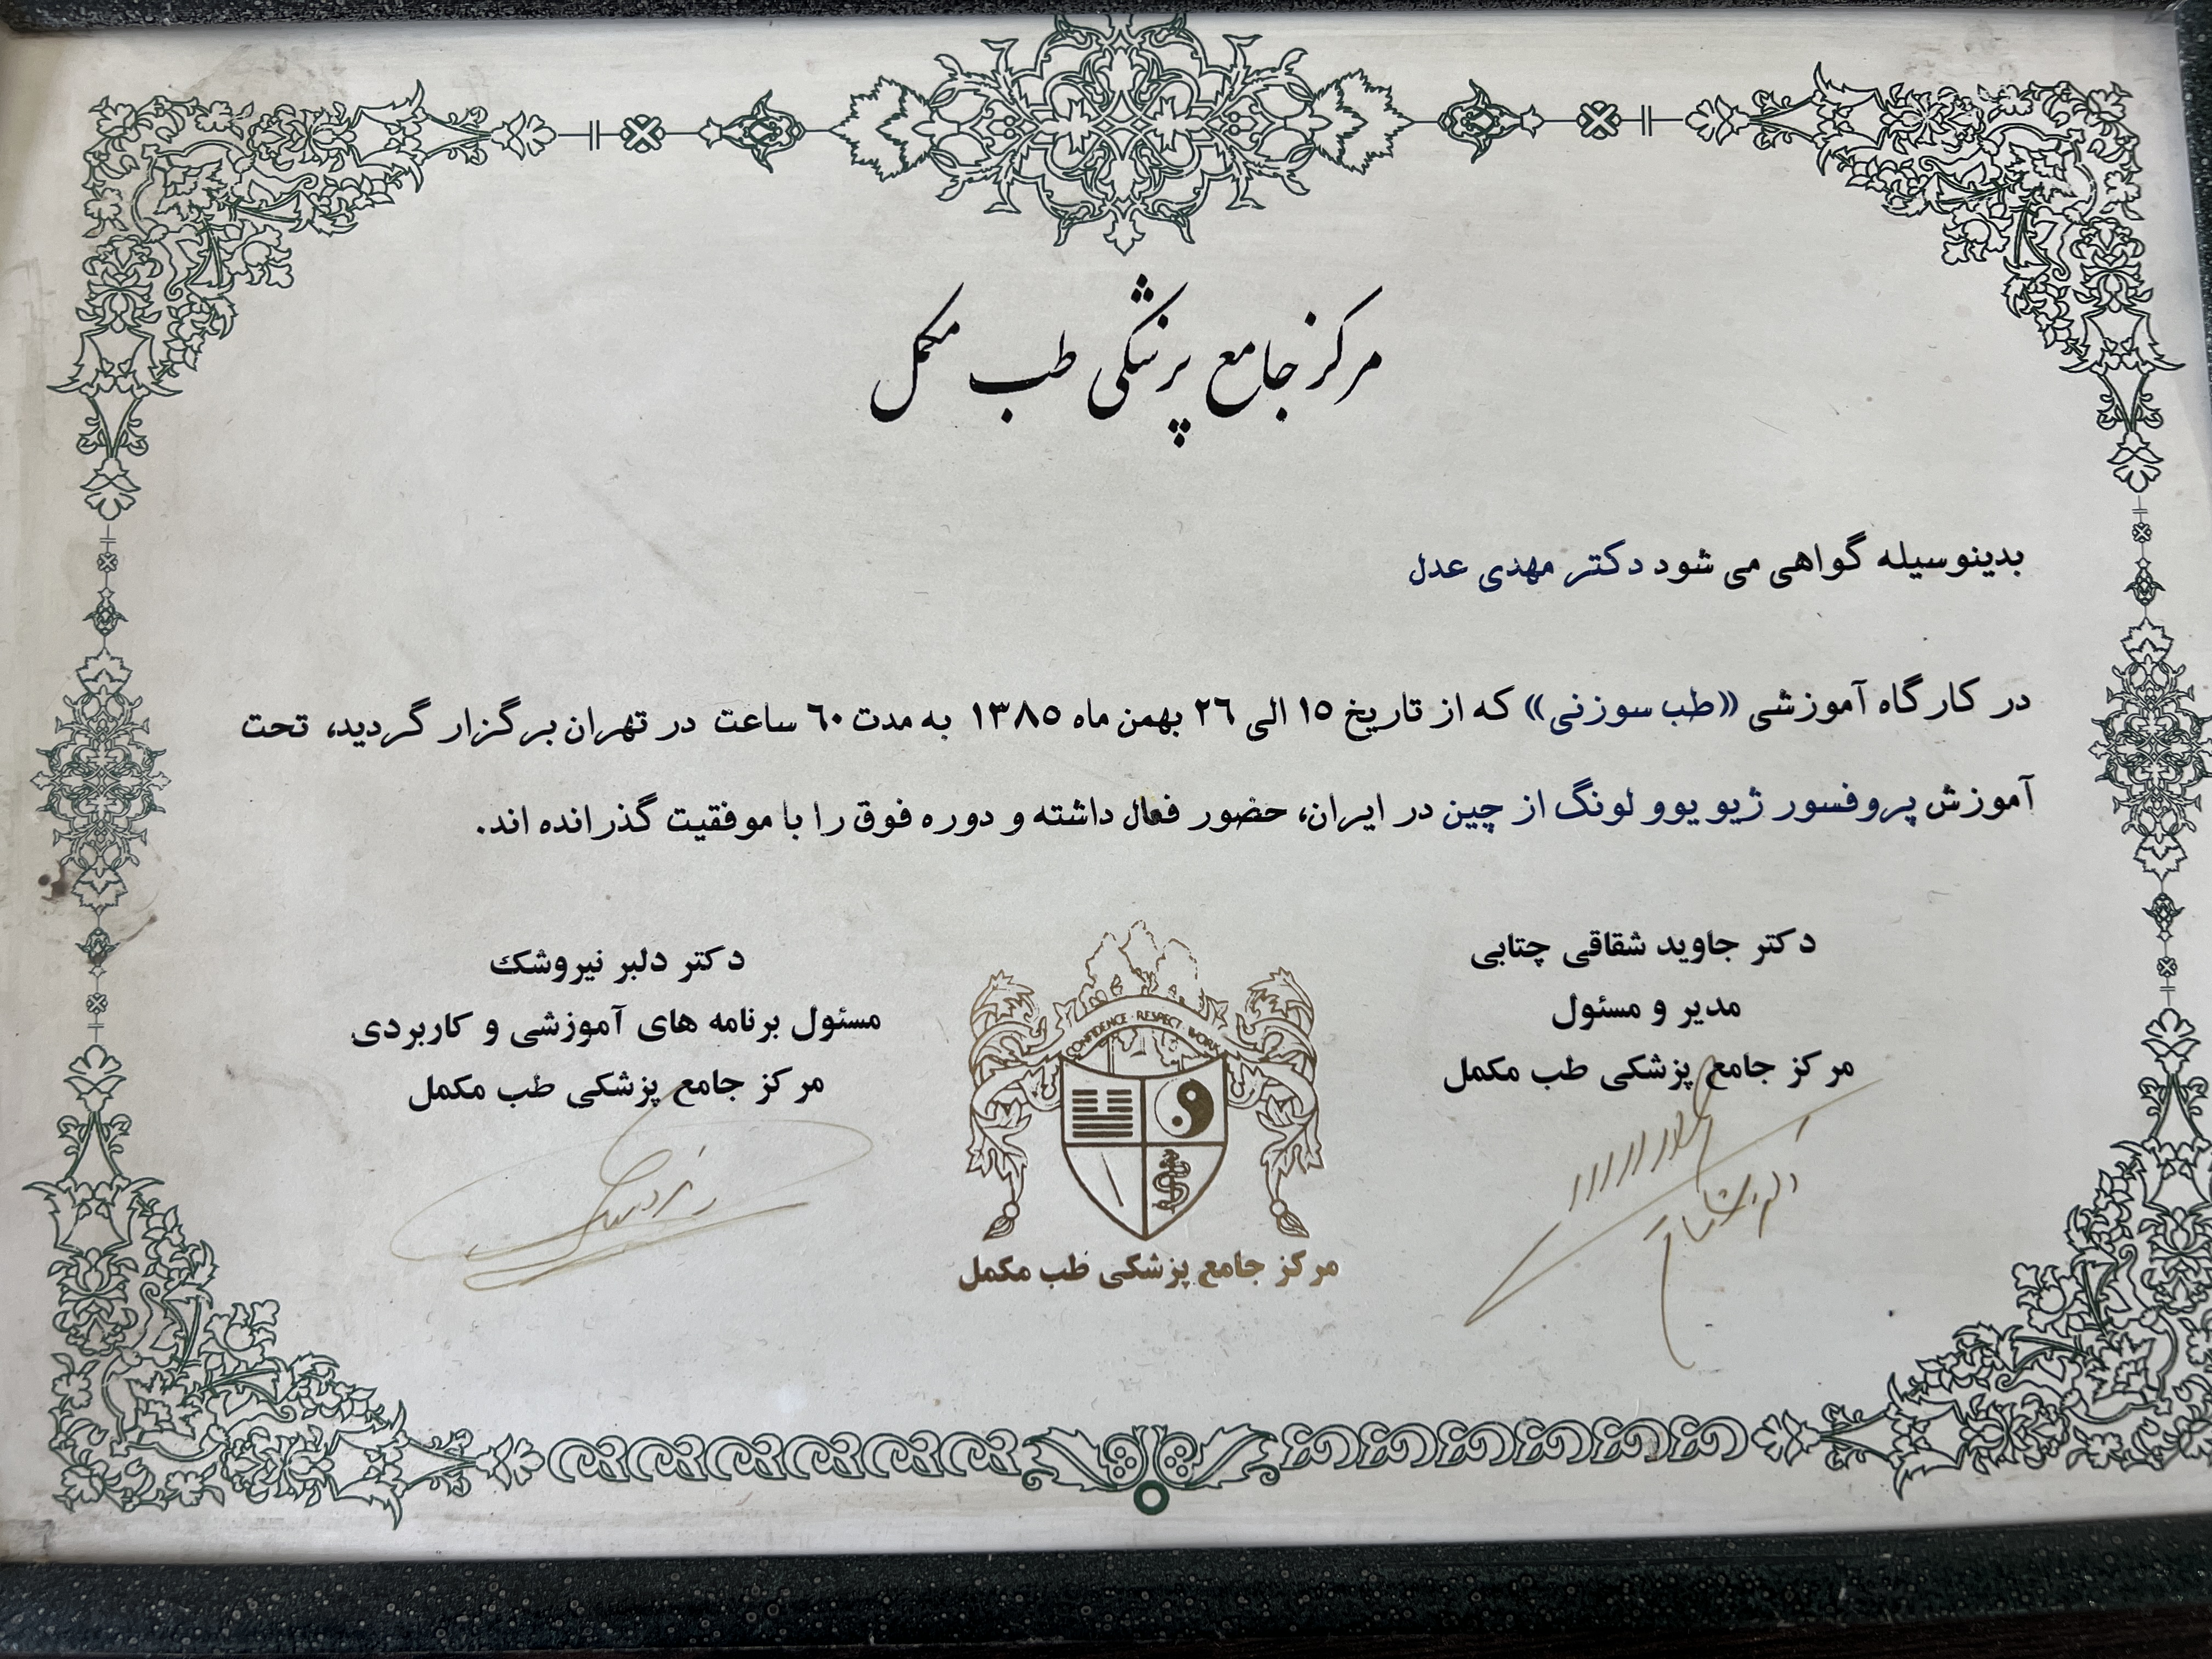 مرکز جامع پزشکی طب مکمل
بدینوسیله گواهی می شود دکتر مهدی عدل
در کارگاه آموزشی «طب سوزنی» که از تاریخ ۱۵ الی ۲۶ بهمن ماه ۱۳۸۵ به مدت ۶۰ ساعت در تهران برگزار گردید، تحت
آموزش پروفسور ژیو یوو لونگ از چین در ایران، حضور فعال داشته و دوره فوق را با موفقیت گذرانده اند.
دکتر جاوید شقاقی چتابی
مدیر و مسئول
مرکز جامع پزشکی طب مکمل
دکتر دلبر نیروشک
مسئول برنامه های آموزشی و کاربردی
مرکز جامع پزشکی طب مکمل
CONFIDENCE · RESPECT · WORK
مرکز جامع پزشکی طب مکمل